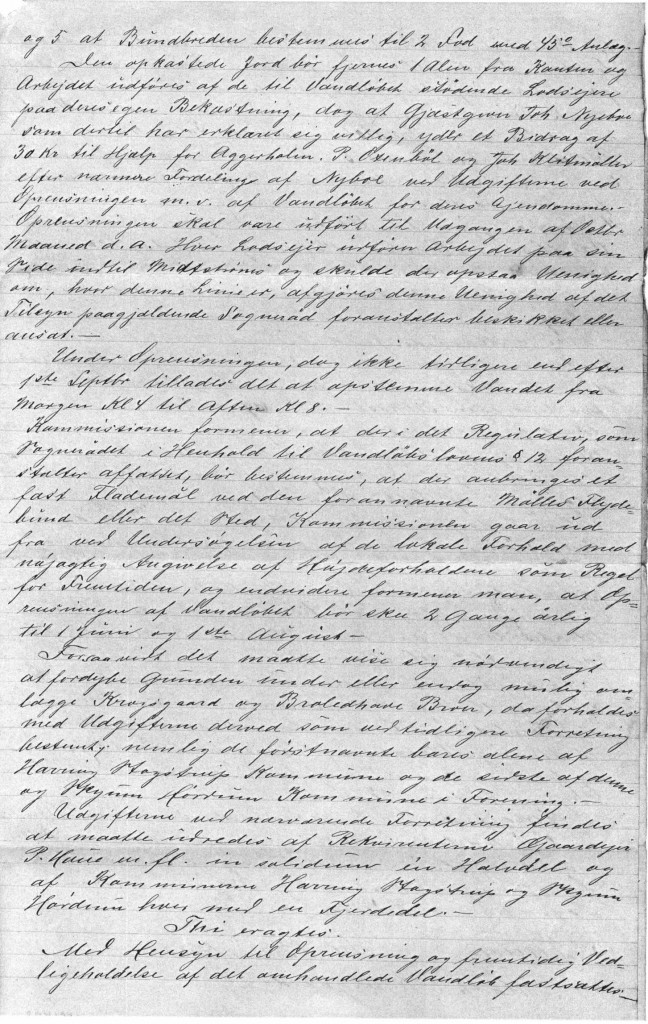 og 5 at Bundbreden bestemmes til 2 Fod med 45° Anlæg.
Den opkastede Jord bør fjernes 1 Alen fra Kanten og
Arbejdet udføres af de til Vandløbet stödende Lodsejere
paa deres egen Bekostning, dog at Gjæstgiver Joh. Nyeboe
som dertil har erklæret sig villig, yder et Bidrag af
30 Kr til Hjælp for Aggerholm. P. Oxenböl og Joh Klitmøller
efter nærmere Fordeling af Nyboe ved Udgifterne ved
Oprensningen m. v. af Vandløbet for deres Ejendomme.-
Oprensningen skal være udført til Udgangen af Octbr
Maaned d. a. Hver Lodsejer udfører Arbejdet paa sin
Side indtil Midtströms og skulde der opstaa Uenighed
om, hvor denne Linie er, afgjöres denne Uenighed af det
Tilsyn paagjældende Sogneraad foranstalter beskikket eller
ansat.-
Under Oprensningen, dog ikke tidligere end efter
1ste Septbr tillades det at opstemme Vandet fra
Morgen Kl 4 til Aften Kl 8.-
Kommissionen formener, at der i det Regulativ, som
Sognerådet i Henhold til Vandløbslovens § 12 foran-
stalter affattet, bör bestemmes, at der anbringes et
fast Flademål ved den forannævnte Mølles Flyde-
bund eller det Sted, Kommissionen gaar ud
fra ved Undersøgelsen af de lokale Forhold med
nöjagtig Angivelse af Höjdeforholdene som Regel
for Fremtiden, og endvidere formener man, at Op-
rensningen af Vandløbet bör ske 2 Gange årlig
til 1 Juni og 1ste August-
Forsaavidt det maatte vise sig nödvendigt
at fordybe Grunden under eller endog mulig om-
lægge Krogsgaard og Broledhave Broer, da forholdes
med Udgifterne derved som ved tidligere Forretning
bestemt; nemlig de förstnævnte bæres alene af
Harring Stagstrup Kommune og de sidste af denne
og Skyum Hördum Kommune i Forening.-
Udgifterne ved nærværende Forretning findes
at maatte udredes af Rekvirenterne Gaardejer
P. Hove m. fl. in solidum én Halvdel og
af Kommunerne Harring Stagstrup og Skyum
Hördum hver med en Fjerdedel.-
Thi eragtes.
Med Hensyn til Oprensning og fremtidig Ved-
ligeholdelse af det omhandlede Vandløb fastsættes-